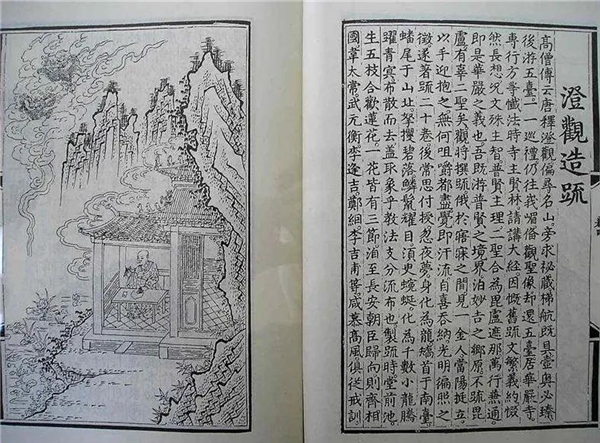 澄觀造疏
高僧傳云唐釋澄觀徧尋名山旁求祕藏梯航既具壼奧必臻
後游五臺一一巡禮仍往峩嵋俗觀聖像却還五臺居華嚴寺
專行方等懺法時寺主賢林請講大經因慨舊疏文繁義約惙
然長想況文殊主智普賢主理二聖合為毘盧遮那萬行兼通
即是華嚴之義也吾既游普賢之境界泊妙吉之鄉原不疏毘
盧有辜二聖矣觀將撰疏俄於寤寐之間見一金人當陽挺立
以手迎抱之無何咀嚼都盡覺即汗流自喜吞納光明徧照之
徵遂著疏二十卷後常思付授忽夜夢身化為龍矯首于南臺
蟠尾于山北拏攫碧落鱗鬣耀日須臾蜿蜒化為千數小龍騰
躍青冥布散而去蓋取象乎教法支分流布也製疏時堂前池
生五枝合歡蓮花一花皆有三節洎至長安朝臣歸向則齊相
國韋太常武元衡李逢吉鄭絪李吉甫等咸慕高風俱從戒訓